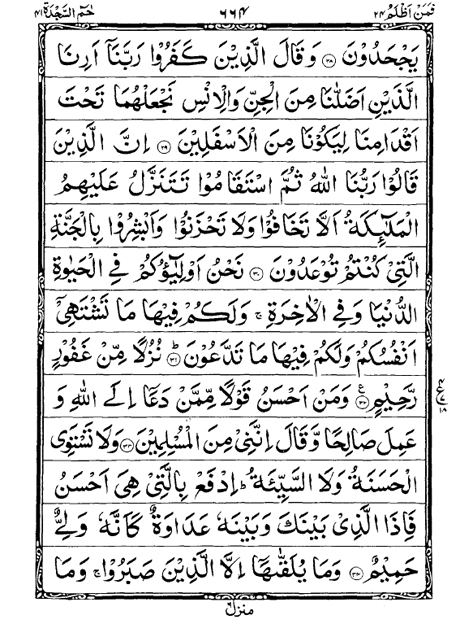 فمن اظلم ۲۴ ٦٦٤ حٰم السجدة ۴۱
يَجْحَدُوْنَ ﴿۲۸﴾ وَقَالَ الَّذِيْنَ كَفَرُوْا رَبَّنَآ اَرِنَا
الَّذَيْنِ اَضَلّٰنَا مِنَ الْجِنِّ وَالْاِنْسِ نَجْعَلْهُمَا تَحْتَ
اَقْدَامِنَا لِيَكُوْنَا مِنَ الْاَسْفَلِيْنَ ﴿۲۹﴾ اِنَّ الَّذِيْنَ
قَالُوْا رَبُّنَا اللّٰهُ ثُمَّ اسْتَقَامُوْا تَتَنَزَّلُ عَلَيْهِمُ
الْمَلٰٓئِكَةُ اَلَّا تَخَافُوْا وَلَا تَحْزَنُوْا وَاَبْشِرُوْا بِالْجَنَّةِ
الَّتِيْ كُنْتُمْ تُوْعَدُوْنَ ﴿۳۰﴾ نَحْنُ اَوْلِيٰٓؤُكُمْ فِي الْحَيٰوةِ
الدُّنْيَا وَفِي الْاٰخِرَةِ ۚ وَلَكُمْ فِيْهَا مَا تَشْتَهِيْٓ
اَنْفُسُكُمْ وَلَكُمْ فِيْهَا مَا تَدَّعُوْنَ ﴿۳۱﴾ نُزُلًا مِّنْ غَفُوْرٍ
رَّحِيْمٍ ﴿۳۲﴾ وَمَنْ اَحْسَنُ قَوْلًا مِّمَّنْ دَعَآ اِلَى اللّٰهِ وَ
عَمِلَ صَالِحًا وَّقَالَ اِنَّنِيْ مِنَ الْمُسْلِمِيْنَ ﴿۳۳﴾ وَلَا تَسْتَوِي
الْحَسَنَةُ وَلَا السَّيِّئَةُ ؕ اِدْفَعْ بِالَّتِيْ هِيَ اَحْسَنُ
فَاِذَا الَّذِيْ بَيْنَكَ وَبَيْنَهٗ عَدَاوَةٌ كَاَنَّهٗ وَلِيٌّ
حَمِيْمٌ ﴿۳۴﴾ وَمَا يُلَقّٰىهَآ اِلَّا الَّذِيْنَ صَبَرُوْا ۚ وَمَا
منزل ٦